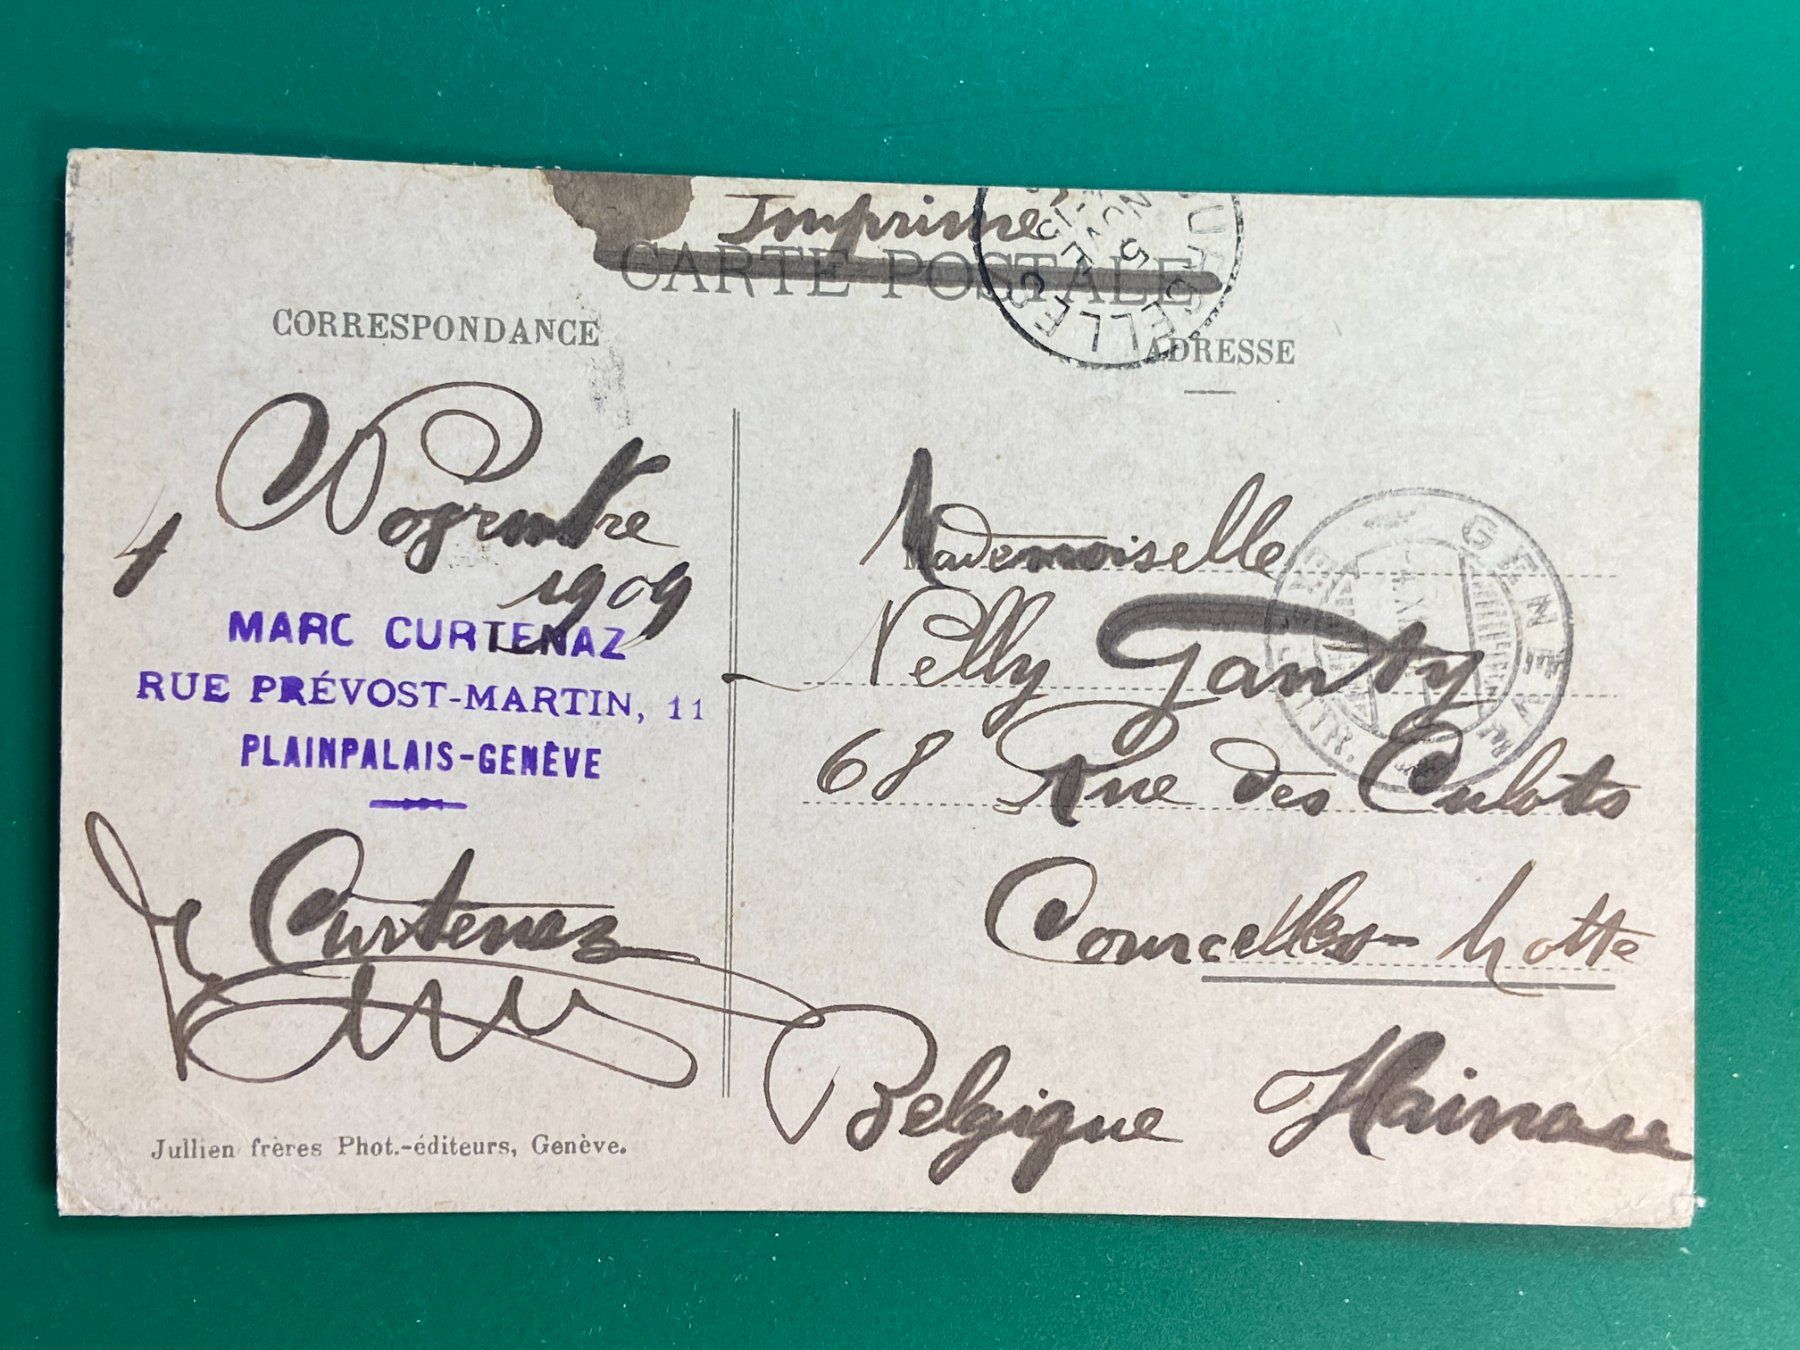 Imprimé
CARTE POSTALE
CORRESPONDANCE
ADRESSE
COURCELLES
5
NOV
4 Novembre
1909
MARC CURTENAZ
RUE PRÉVOST-MARTIN, 11
PLAINPALAIS-GENÈVE
Curtenaz
Jullien frères Phot.-éditeurs, Genève.
GENÈVE
Mademoiselle
Nelly Ganty
68 Rue des Culots
Courcelles-Motte
Belgique Hainaut